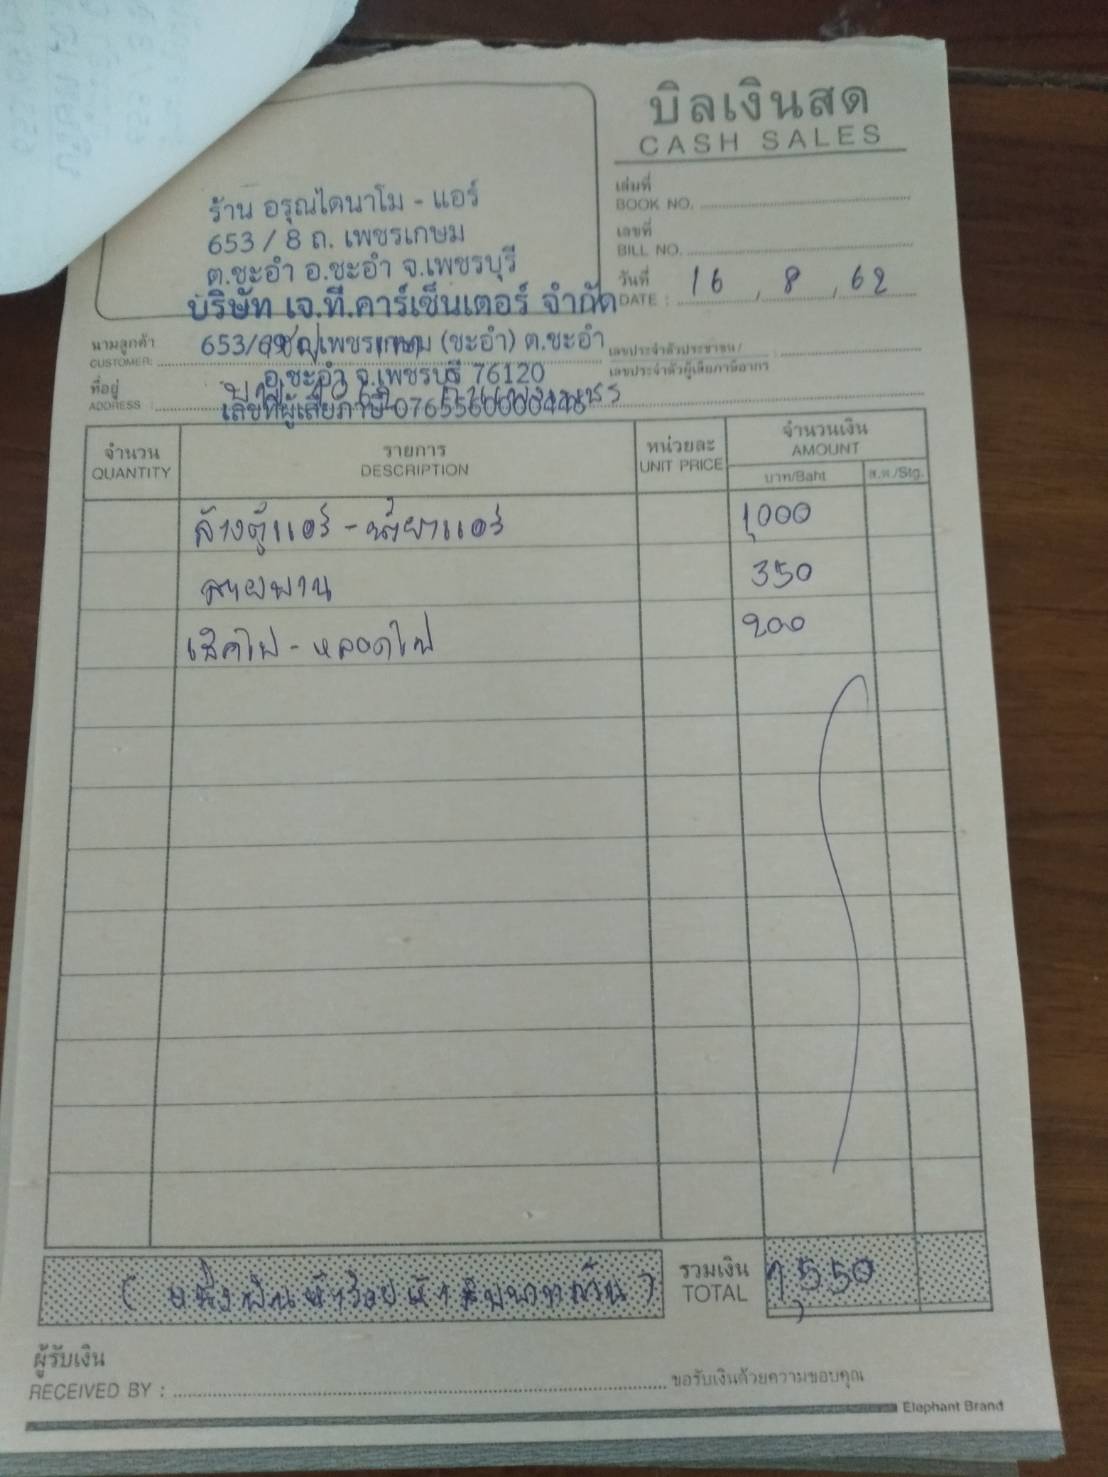 บิลเงินสด
CASH SALES
ร้าน อรุณไดนาโม - แอร์
653 / 8 ถ. เพชรเกษม
ต.ชะอำ อ.ชะอำ จ.เพชรบุรี
เล่มที่
BOOK NO.
เลขที่
BILL NO.
วันที่
DATE : 16 / 8 / 62
บริษัท เจ.ที.คาร์เซ็นเตอร์ จำกัด
นามลูกค้า
CUSTOMER:
เพชรเกษม (ชะอำ) ต.ชะอำ
อ.ชะอำ จ.เพชรบุรี 76120
เลขประจำตัวประชาชน/
เลขประจำตัวผู้เสียภาษีอากร
ที่อยู่
ADDRESS :
เลขที่ผู้เสียภาษี
จำนวน
QUANTITY
รายการ
DESCRIPTION
หน่วยละ
UNIT PRICE
จำนวนเงิน
AMOUNT
บาท/Baht ส.ต./Stg.
ล้างตู้แอร์ - น้ำยาแอร์ 1,000
สายพาน 350
เช็คไฟ - หลอดไฟ 200
(หนึ่งพันห้าร้อยห้าสิบบาทถ้วน)
รวมเงิน
TOTAL
1,550
ผู้รับเงิน
RECEIVED BY :
ขอรับเงินด้วยความขอบคุณ
Elephant Brand